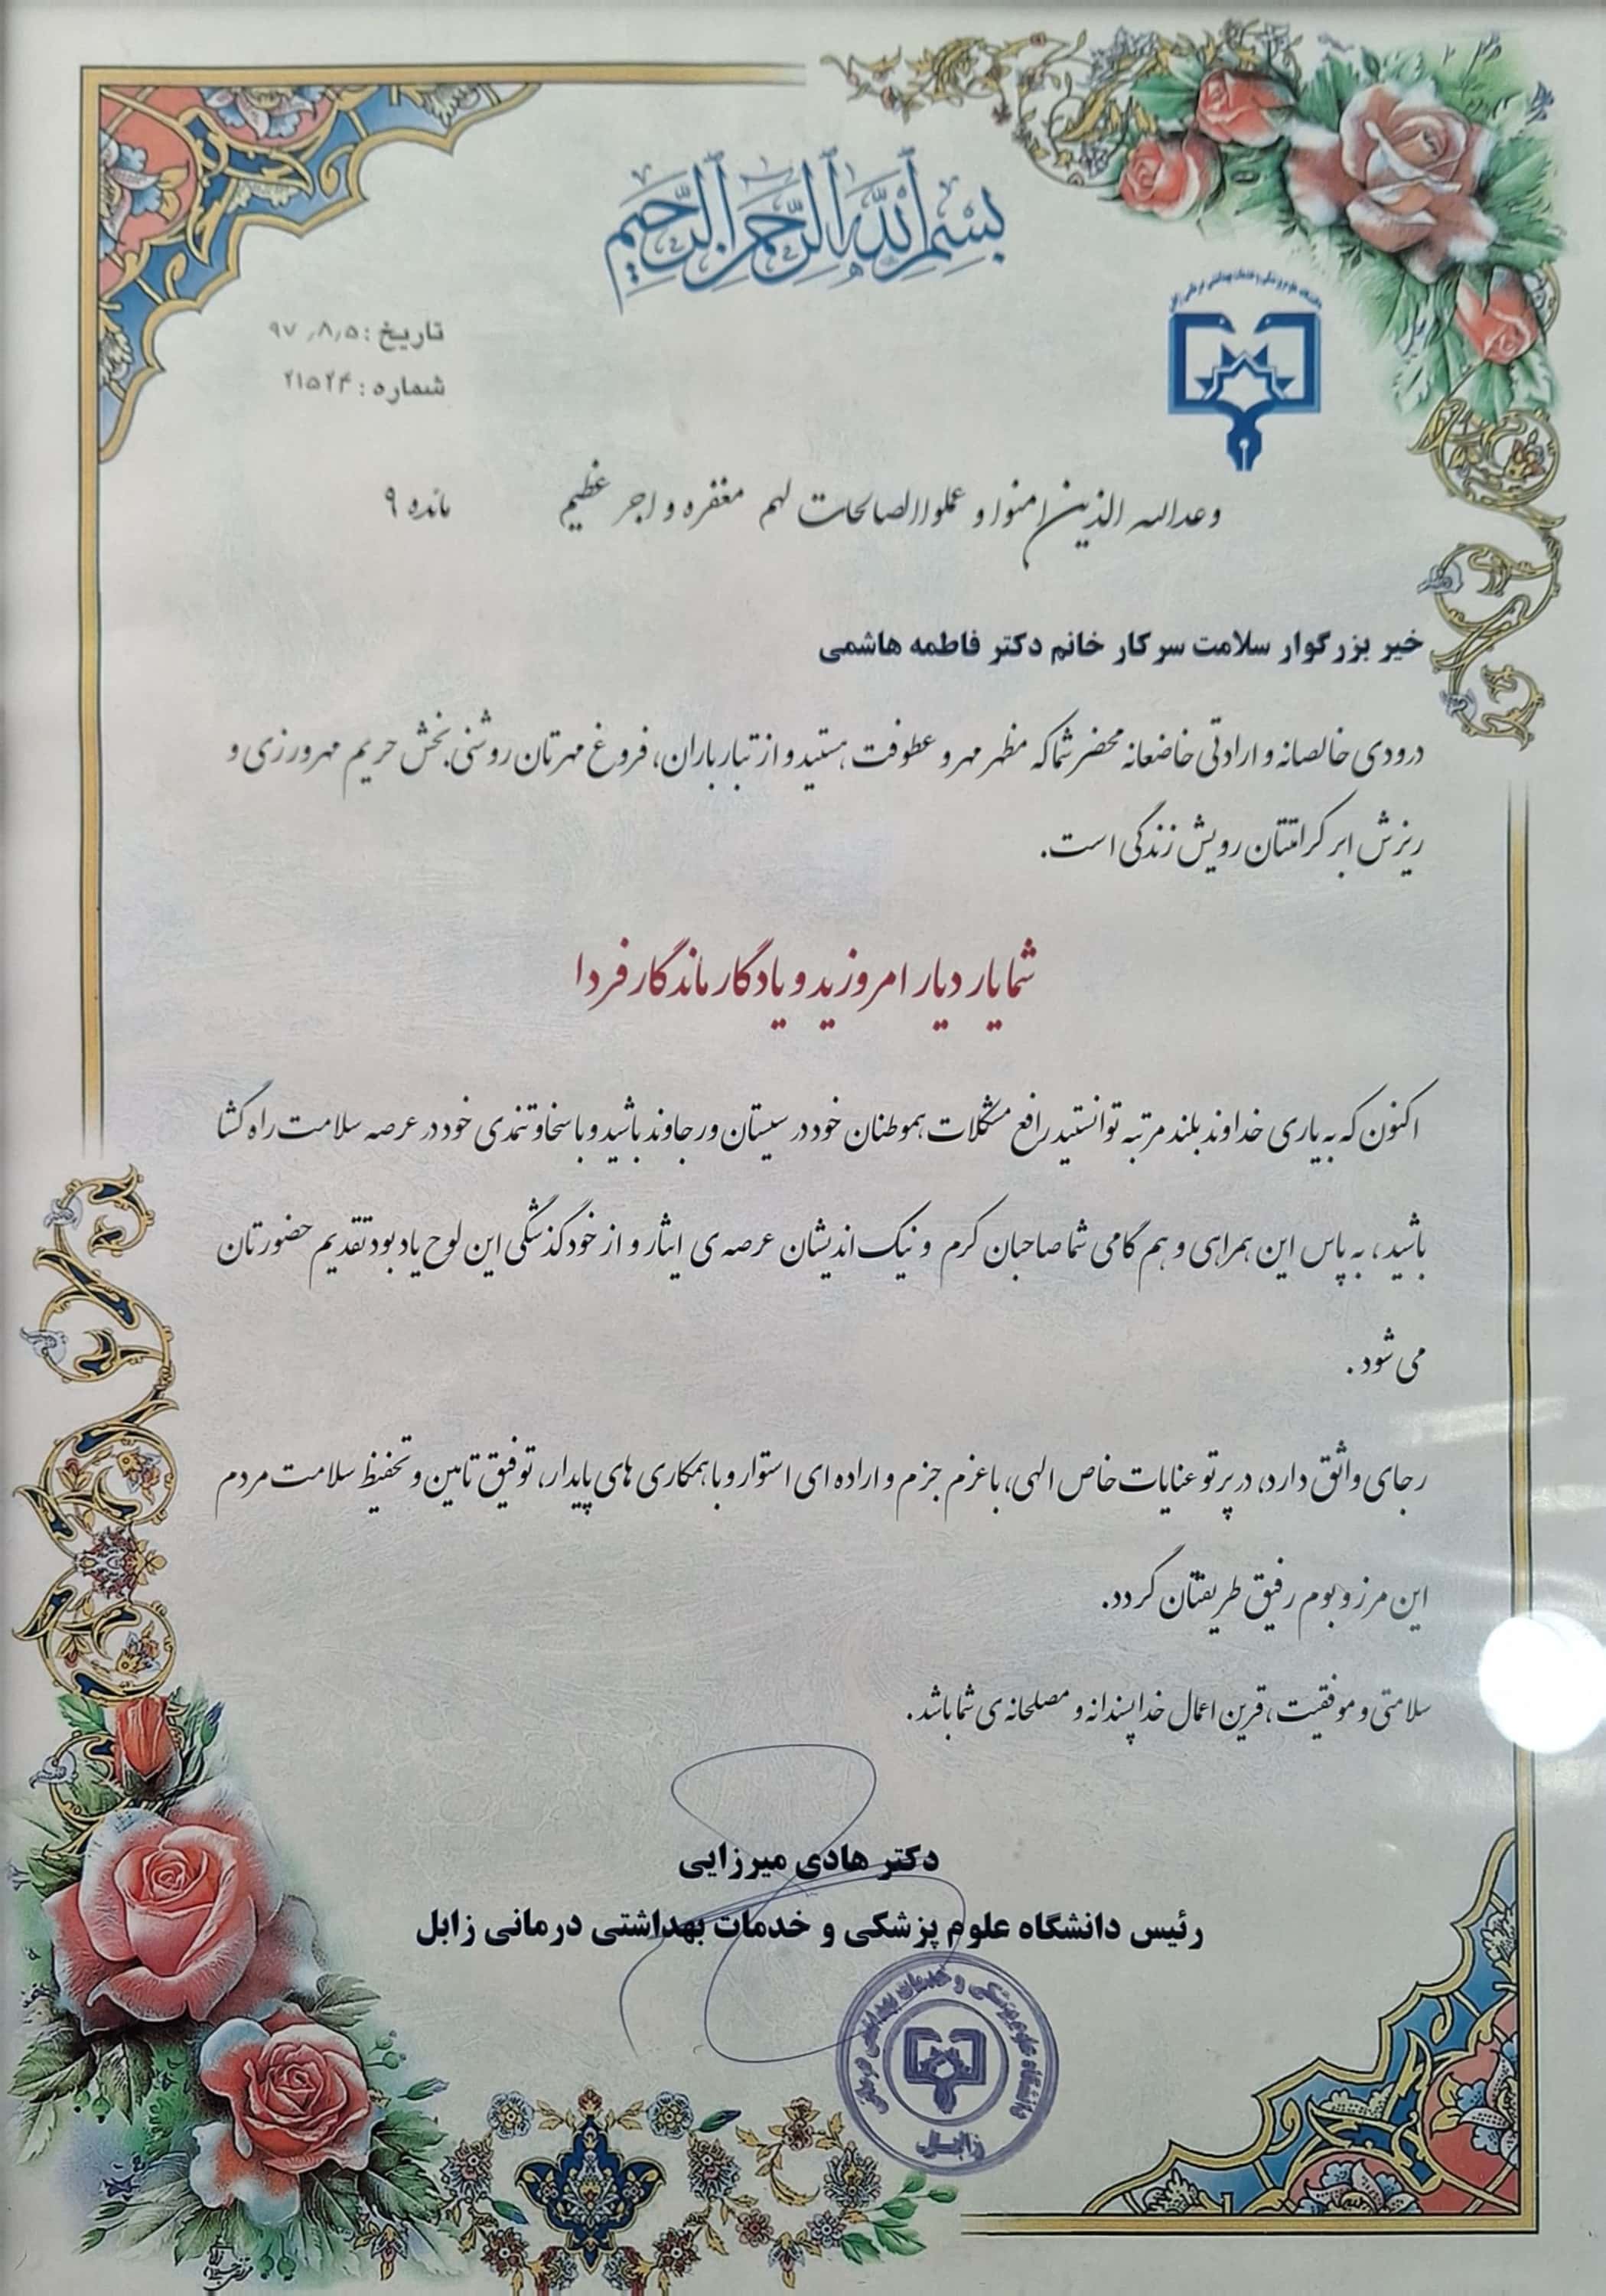 بسم الله الرحمن الرحیم
دانشگاه علوم پزشکی و خدمات بهداشتی درمانی زابل
تاریخ : ۹۷/۸/۵
شماره : ۲۱۵۲۴
وعدالله الذین امنوا و عملوا الصالحات لهم مغفره و اجر عظیم مائده ۹
خیر بزرگوار سلامت سرکار خانم دکتر فاطمه هاشمی
درودی خالصانه و ارادتی خاضعانه محضر شما که مظهر مهر و عطوفت هستید و از تبار باران، فروغ مهرتان روشنی بخش حریم مهرورزی و
ریزش ابر کرامتتان رویش زندگی است.
شما یار دیار امروزید و یادگار ماندگار فردا
اکنون که به یاری خداوند بلند مرتبه توانستید رافع مشکلات هموطنان خود در سیستان ورجاوند باشید و با سخاوتمندی خود در عرصه سلامت راه گشا
باشید، به پاس این همراهی و هم گامی شما صاحبان کرم و نیک اندیشان عرصه ی ایثار و از خودگذشتگی این لوح یادبود تقدیم حضورتان
می شود .
رجای واثق دارد، در پرتو عنایات خاص الهی، با عزم جزم و اراده ای استوار و با همکاری های پایدار، توفیق تامین و تحفیظ سلامت مردم
این مرز و بوم رفیق طریقتان گردد.
سلامتی و موفقیت، قرین اعمال خداپسندانه و مصلحانه ی شما باشد.
دکتر هادی میرزایی
رئیس دانشگاه علوم پزشکی و خدمات بهداشتی درمانی زابل
دانشگاه علوم پزشکی و خدمات بهداشتی درمانی
زابل